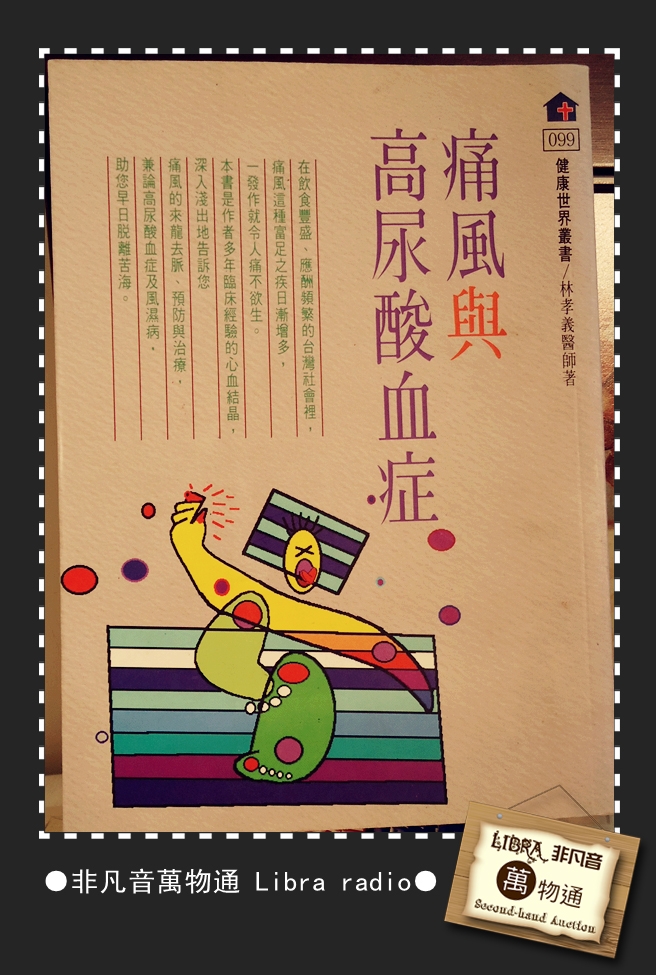 099
健康世界叢書/林孝義醫師著
痛風與
高尿酸血症
在飲食豐盛、應酬頻繁的台灣社會裡，
痛風這種富足之疾日漸增多，
一發作就令人痛不欲生。
本書是作者多年臨床經驗的心血結晶，
深入淺出地告訴您
痛風的來龍去脈、預防與治療，
兼論高尿酸血症及風濕病，
助您早日脫離苦海。
●非凡音萬物通 Libra radio●
LIBRA 非凡音
萬物通
Second-hand Auction